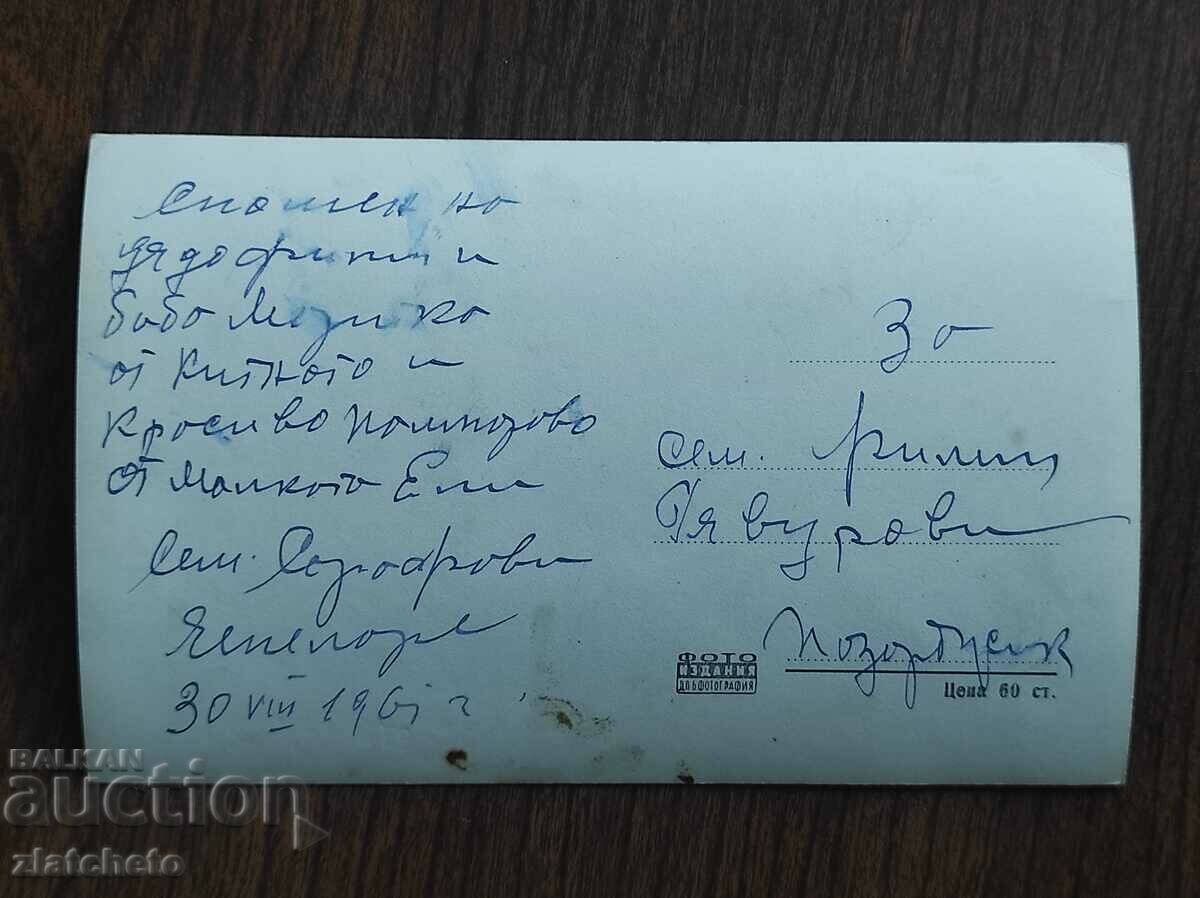 Спомен на
дядо Филип и
баба Мазика
от Китното и
Красиво Памидово
От Малката Ели
Сем. Сарафови
30 VIII 1961 г
За
сем. Филип
Гяурови
Пазарджик
ФОТО
ИЗДАНИЯ
ДП БЪЛФОТОГРАФИЯ
Цена 60 ст.
BALKAN
auction
zlatcheto